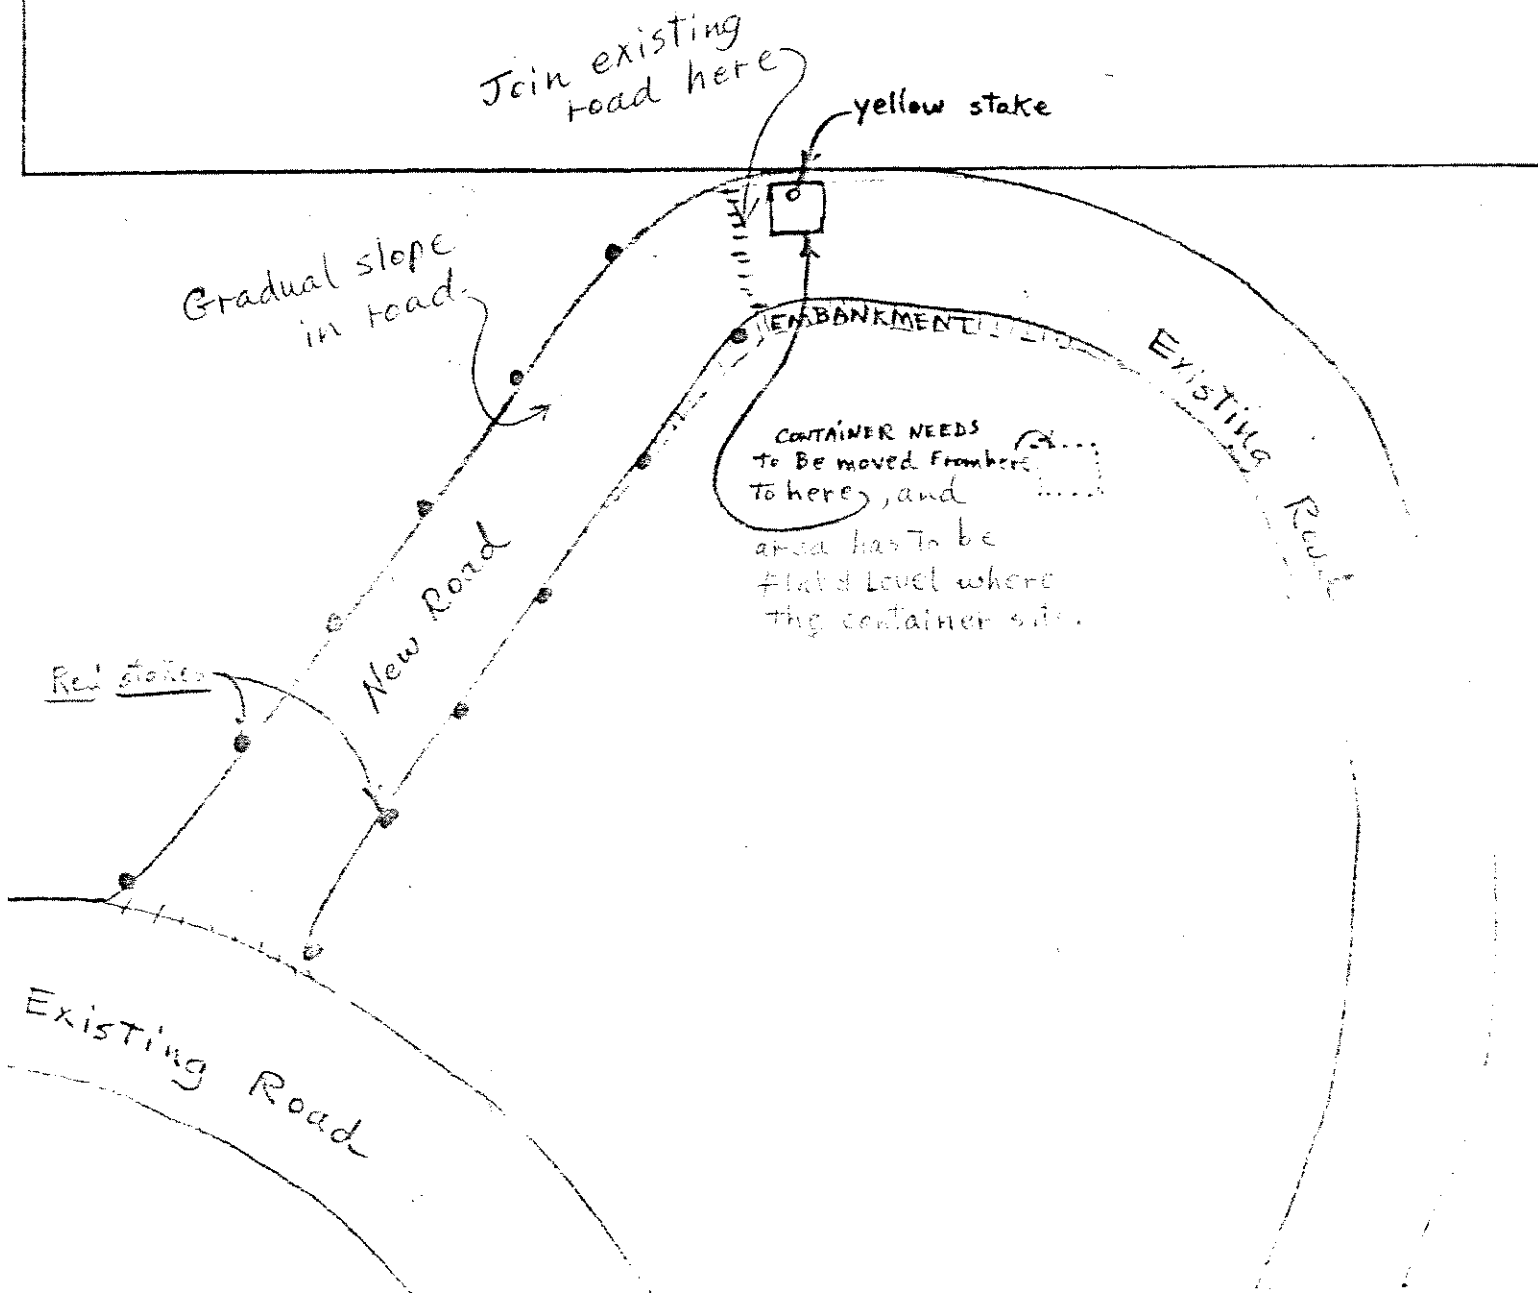 Join existing
road here
yellow stake
Gradual slope
in road.
EMBANKMENT
Existing Road
CONTAINER NEEDS
To Be moved From here
To here, and
area has to be
flat & Level where
the container sits.
New Road
Red stakes
Existing Road